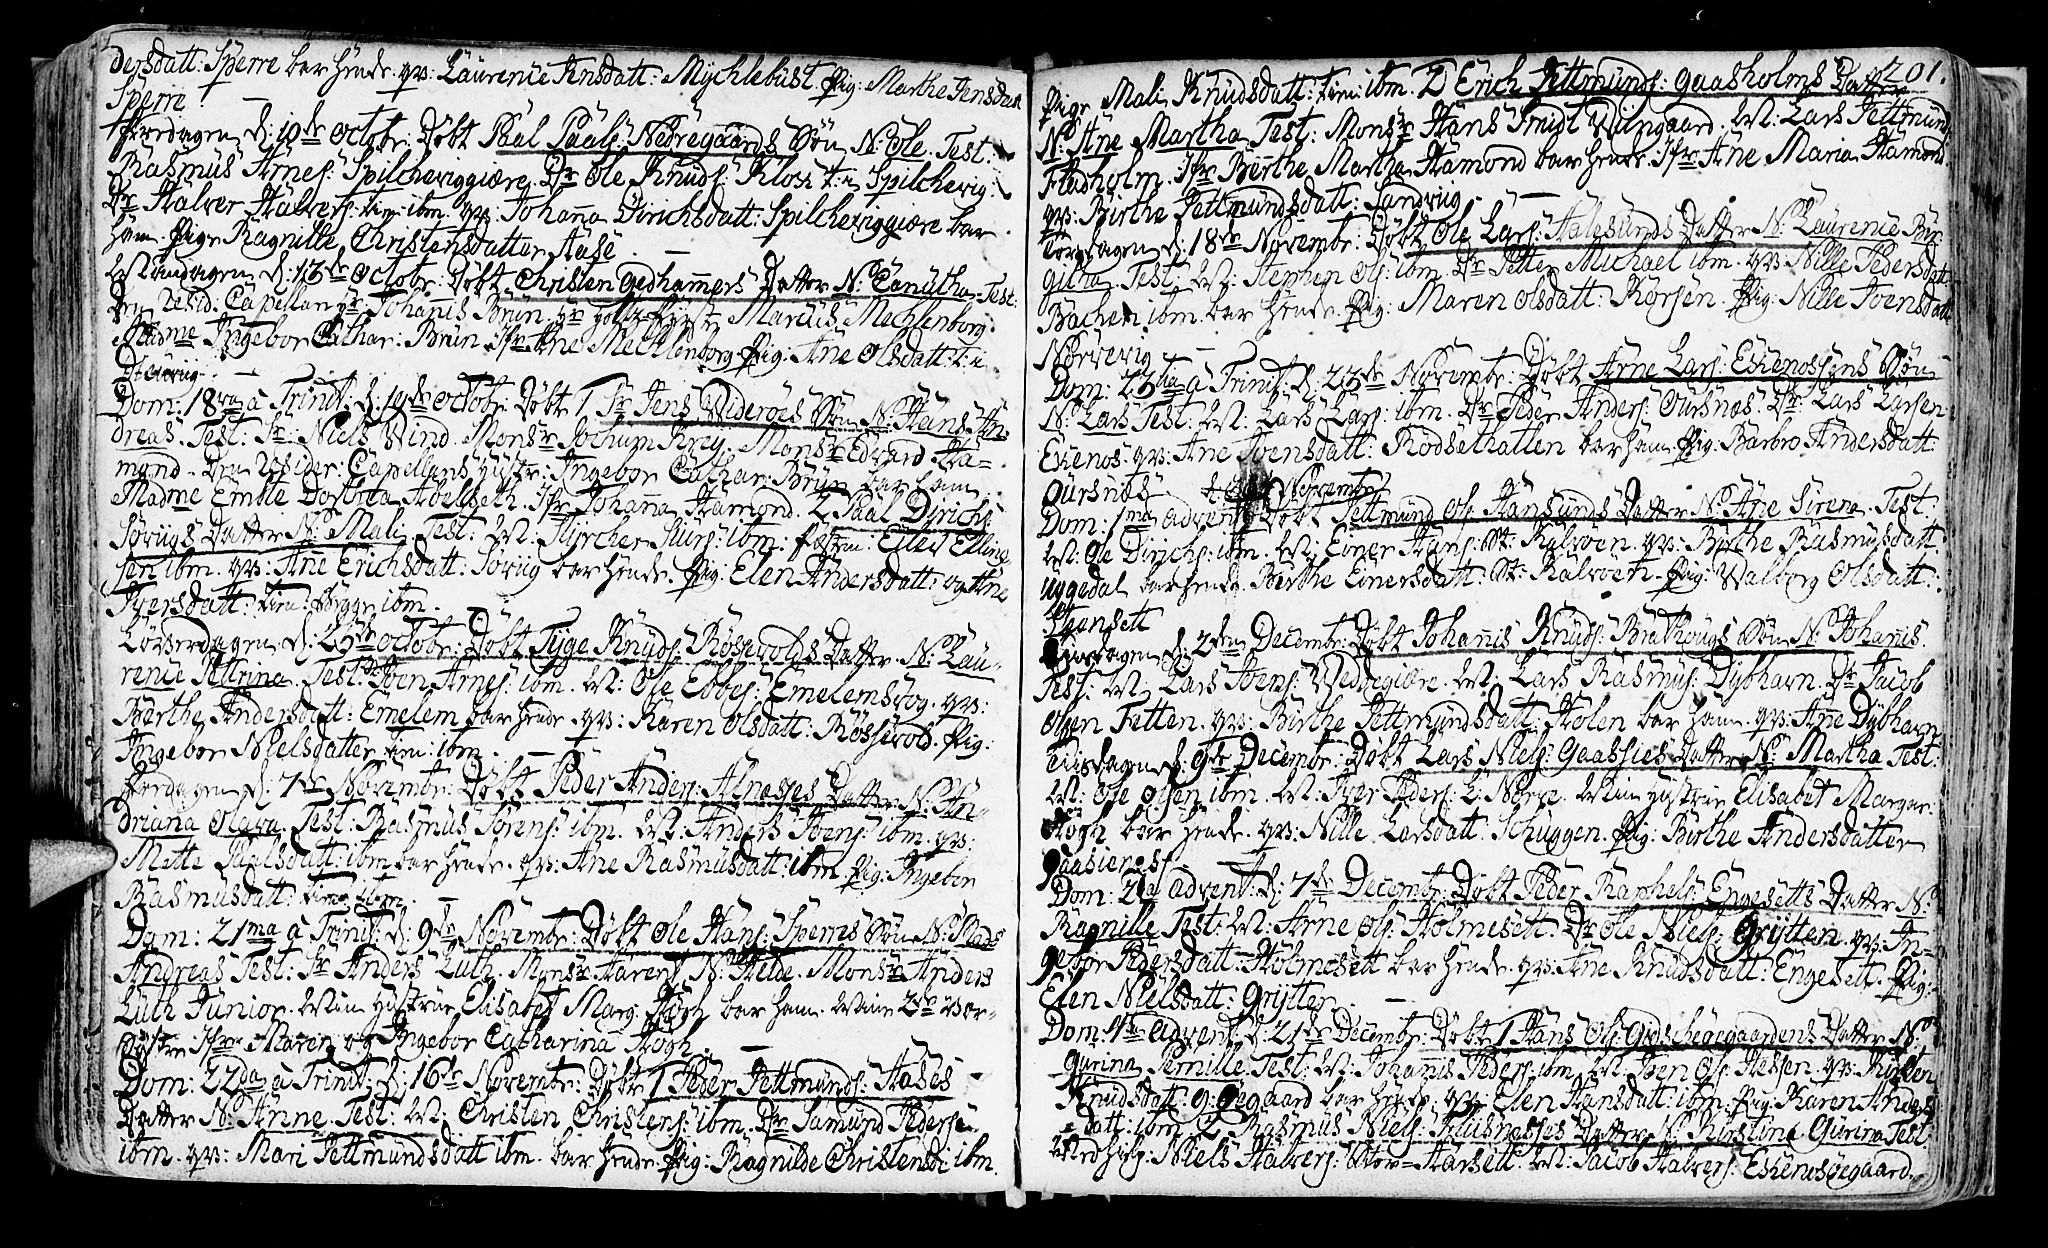 dersdatt: Sperre bar hende. qv: Laurence Jensdatt: Mychlebust. Pig: Marthe Jensdatt
Sperre
Fredagen d: 10de Octobr: Døbt Paal Paals: Nedregaards Søn N: Ole. Test:
Rasmus Arnes: Spilcheviggiære. Dr: Ole Knuds: Kloss t: i Spilchevig.
Dr: Halver Halvers: tien: ibm. qv: Johanna Dirichsdatt: Spilcheviggiære bar
ham. Pige Ragnille Christensdatter Aase.
Mandagen d: 13de Octobr: Døbt Christen Gedhammers Datter N: Canutha. Test:
Den resid: Capellan Hr: Johannis Brun. Hr Marcus Mechlenborg
Madme Ingebor Cathar: Brun. Jfr Ane Mechlenborg. Pig: Ane Olsdatt: t: i

Dom: 18va a Trinit: d: 19de Octobr: Døbt 1 Sr Jens Viderøes Søn N: Hans An-
dreas. Test: Sr: Niels Wind. Monsr Jochum Krey. Monsr Edvard Ha-
mond. Den Resider: Capellans Hystr: Ingebor Cathar: Brun bar ham
Madme Emble Dorthea Abelseth. Jfr Johanna Hamond. 2 Paal Dirichs:
Sørvigs Datter N: Mali. Test: M: Styrcher Sturs: ibm. Elling
sen ibm. qv: Ane Erichsdatt: Sørvig bar hende. Pig: Elen Andersdatt: og Ane
Iversdatt: tien: begge ibm.
Løverdagen d: 25de Octobr: Døbt Tyge Knuds: Røssevolds Datter. N: Lau-
rence Pettrina. Test: Joen Arnes: ibm. M: Ole Ebbes: Emelemsvog. qv:
Berthe Andersdatt: Emelem bar hende. qv: Karen Olsdatt: Røssevol. Pig:
Ingebor Nielsdatter tien: ibm.
Fredagen d: 7de Novembr: Døbt Peder Anders: Alnæsses Datter N: An-
driana Olava. Test: Rasmus Sørens: ibm. M: Anders Joens: ibm. qv:
Mette Paalsdatt: ibm bar hende. qv: Ane Rasmusdatt: ibm. Pig: Ingebor
Rasmusdatt: tien: ibm.
Dom: 21ma a Trinit: d: 9de Novembr: Døbt Ole Hans: Sperres Søn N: Mads
Andreas. Test: Sr Anders Luth. Monsr Harens N: Helde. Monsr Anders
Luth Junior. Min Hystrue Elisabet Marg: Høgh bar ham. Mine 2de Ver-
søstre Jfr Maren og Ingebor Catharina Høgh.
Dom: 22da a Trinit: d: 16de Novembr: Døbt 1 Peder Pettmunds: Aases
Datter N: Anne. Test: M: Christen Christens: ibm. Dr: Samund Pedersen
ibm. qv: Mari Pettmundsdatt ibm. bar hende. Pig: Ragnilde Christensd: ibm.
201.
Pige Mali Knudsdatt: tien: ibm. 2 Erich Pettmunds: Gaasholms Datter
N: Ane Martha. Test: Monsr Hans Smidt Wiingaard. M: Lars Pettmunds:
Fladholm. Jfr Berthe Martha Hamond bar hende. Jfr Ane Maria Hamond.
qv: Birthe Pettmundsdatt: Sandvig.
Torsdagen d: 18de Novembr: Døbt Ole Lars: Aalesunds Datter N: Laurence Bir-
githa. Test: M: Stephen Ols: ibm. Dr Petter Michael ibm. qv: Nille Pedersdatt:
Bachen ibm. bar hende. Pig: Maren Olsdatt: Korsen. Pig: Nille Joensdatt:
Nørvevig
Dom: 23tia a Trinit: d: 23de Novembr: Døbt Arne Lars: Eskenossens Søn
N: Lars. Test: M: Lars Lars: ibm. Dr: Peder Anders: Oursnæs. Dr: Lars Larsen
Eskenos. qv: Ane Joensdatt: Rødsethatlen bar ham. Pig: Barbro Andersdatt:
Oursnæs
Dom: 1ma Advent Døbt Pettmund Ols: Hansunds Datter N: Ane Sirena. Test:
M: Ole Dirichs: ibm. M: Einer Hans: St: Kalvøen. qv: Birthe Rasmusdatt
Uggedal bar hende. Berthe Einersdatt: St: Kalvøen. Pig: Walborg Olsdatt:
Hansett
Tirsdagen d: 2den Decembr: Døbt Johannis Knuds: Brathougs Søn N: Johannis.
Test: M: Lars Joens: Wedvegiære. M: Lars Rasmus: Dybhavn. Dr: Jacob
Olsen Fetten. qv: Birthe Pettmundsdatt: Holen bar ham. qv: Ane Dybhavn
Tirsdagen d: 9de Decembr: Døbt Lars Niels: Gaassies Datter N: Martha. Test:
M: Ole Olsen ibm. M: Iver Peders: L: Nørve. Min Hystrue Elisabet Margar:
Høgh bar hende. qv: Nille Larsdatt: Schuggen. Pig: Birthe Andersdatter
Gaasienes
Dom: 2da Advent: d: 7de Decembr: Døbt Peder Raphels: Engesetts Datter N:
Ragnille. Test: M: Arne Ols: Holmesett. Dr: Ole Niels: Grytten. qv: In-
gebor Pedersdatt: Holmesett bar hende. qv: Ane Knudsdatt: Engesett. Pig:
Elen Nielsdatt: Grytter.
Dom: 4ta Advent d: 21de Decembr: Døbt 1 Hans Ols: Gidschegaardens Datter N:
Gurina Pernille. Test: M: Johannis Peders: ibm. M: Joen Ols: Hessen. qv: Kirsten
Knudsdatt: Gidsegaard bar hende. qv: Elen Hansdatt: ibm. Pig: Karen Anders
datt: ibm. 2 Rasmus Niels: Flisnæsses Datter N: Kirstine Gurina. Test
Niels Halvers: Stor-Harsett. M: Jacob Halvers: Eskenosøegaard.